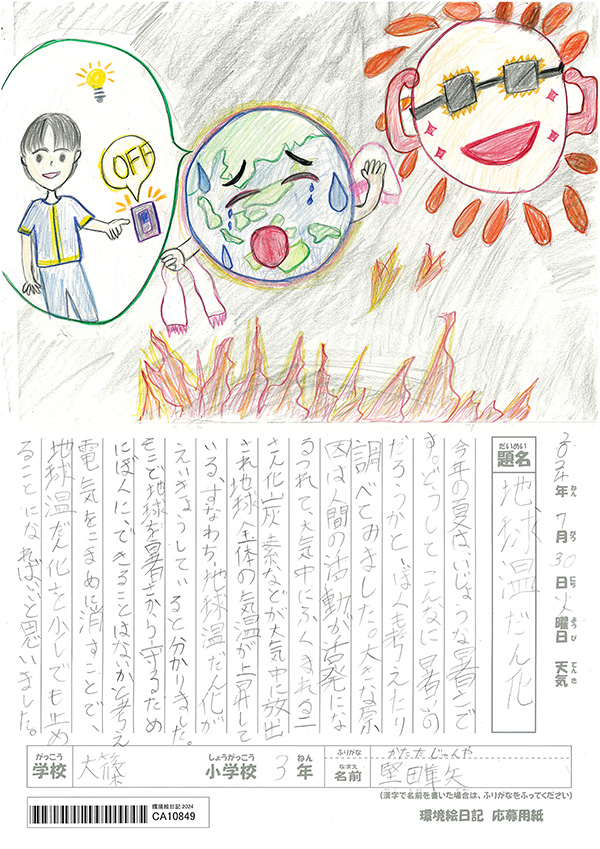 OFF
2024年 7月 30日 火曜日 天気
ねん がつ にち ようび てんき
だいめい
題名
地球温だん化
今年の夏はいじょうな暑さで
す。どうしてこんなに暑いの
だろうかと、ぼくも考えたり
調べてみました。大きな原
因は人間の活動が活発にな
るつれて、大気中にふくまれる二
さん化炭素などが大気中に放出
され地球全体の気温が上昇して
いる、すなわち、地球温だん化が
えいきょうしていると分かりました。
そこで地球を暑さから守るため
にぼくに、できることはないかと考え
電気をこまめに消すことで、
地球温だん化を少しでも止め
ることになればいいと思いました。
がっこう しょうがっこう ねん
学校 大篠 小学校 3年
ふりがな かただじゅんや
なまえ
名前 堅田隼矢
(漢字で名前を書いた場合は、ふりがなをふってください)
環境絵日記 2024
CA10849
環境絵日記 応募用紙